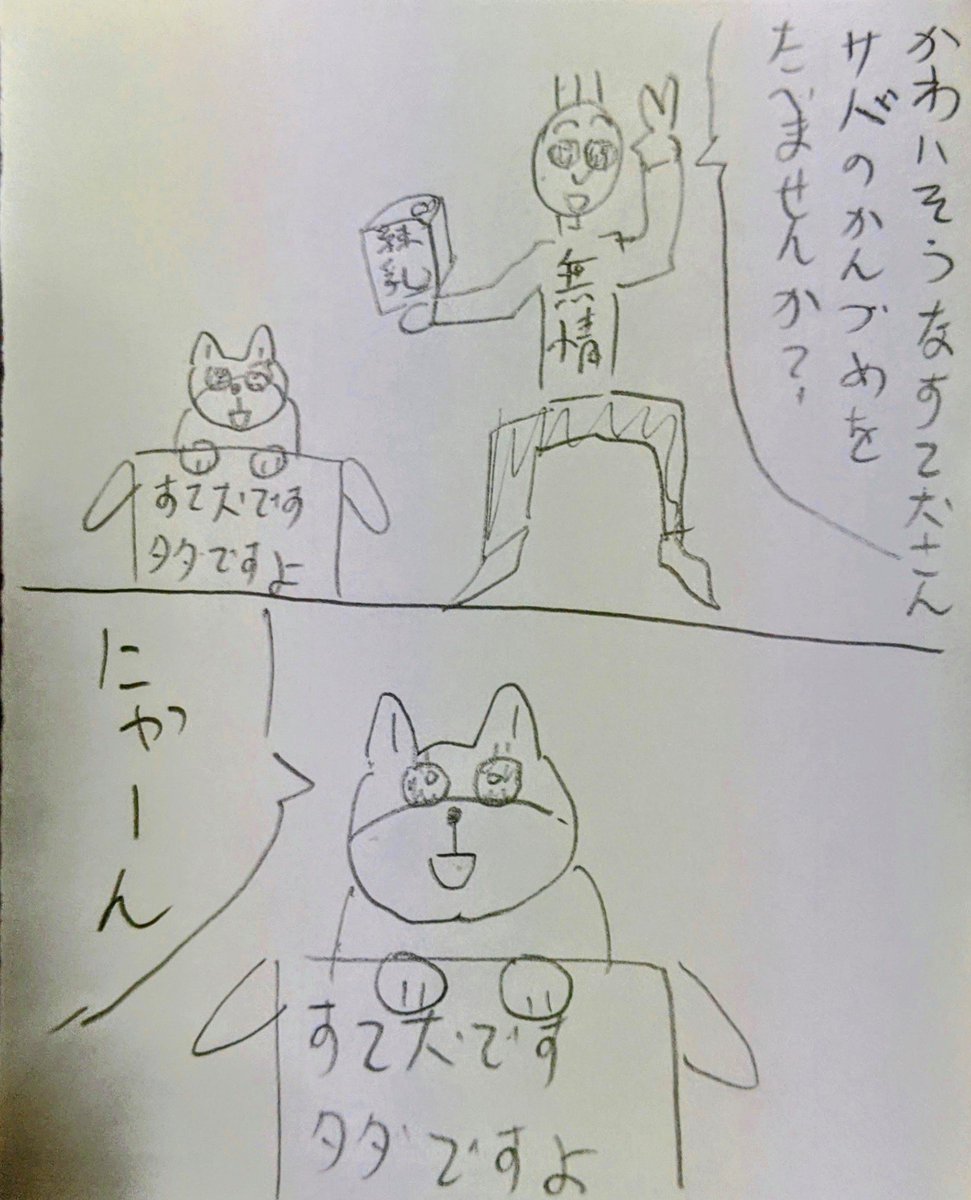 かわいそうなすて犬さん
サバのかんづめを
たべませんか?
無情
練乳
すて犬です
タダですよ
にゃーん
すて犬です
タダですよ